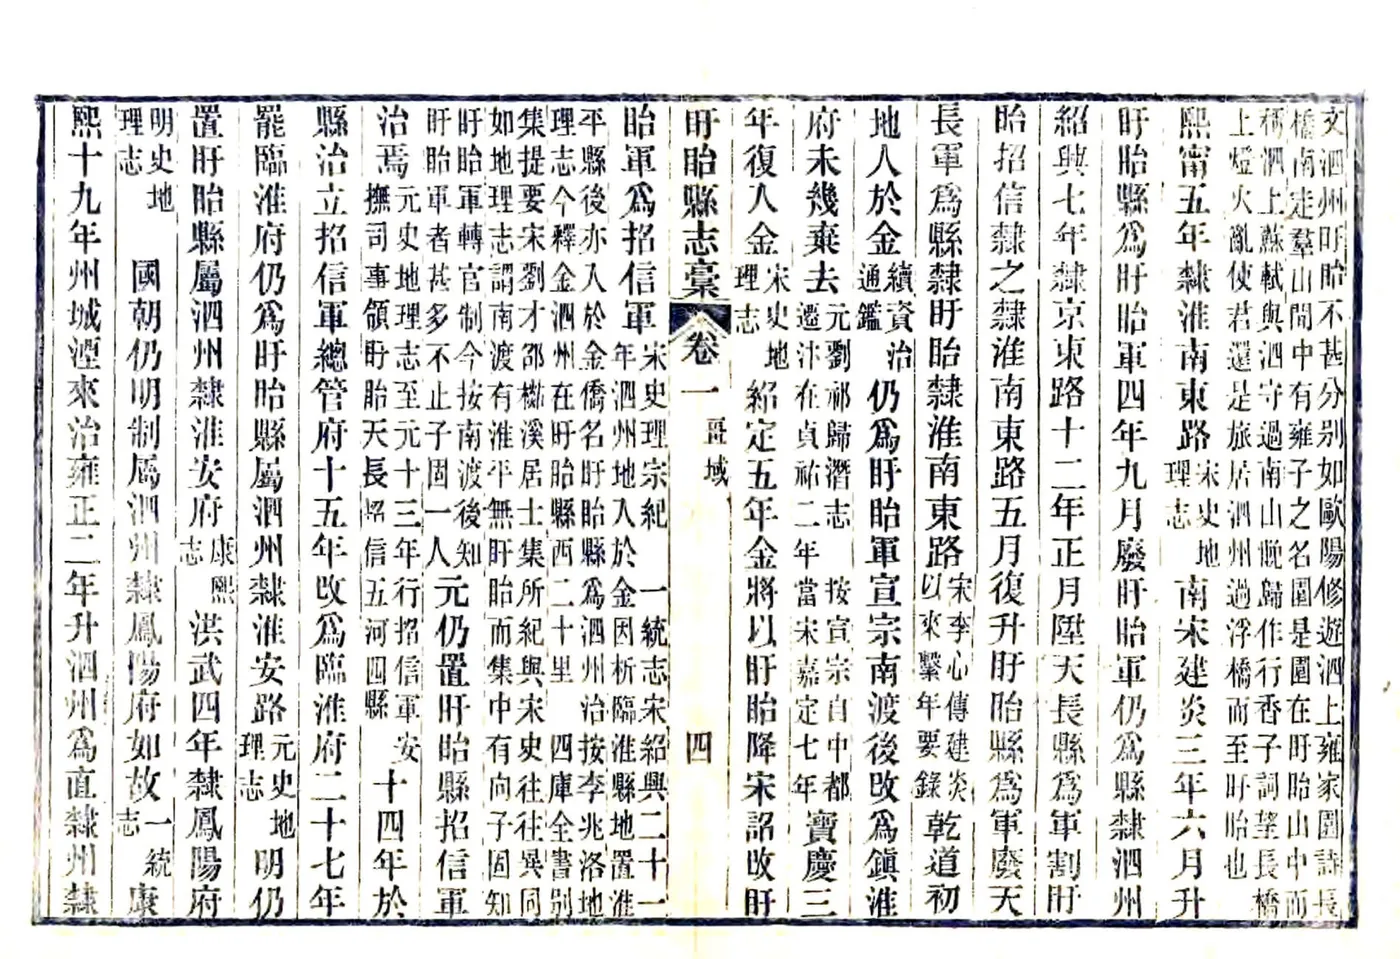 文泗州盱眙不甚分别如歐陽修遊泗上雍家園詩長
橋南走羣山間中有雍子之名園是園在盱眙山中而
稱泗上蘇軾與泗守過南山晚歸作行香子詞望長橋
上燈火亂使君還是旅居泗州過浮橋而至盱眙也
熙甯五年隸淮南東路宋史地理志南宋建炎三年六月升
盱眙縣爲盱眙軍四年九月廢盱眙軍仍爲縣隸泗州
紹興七年隸京東路十二年正月陞天長縣爲軍割盱
眙招信隸之隸淮南東路五月復升盱眙縣爲軍廢天
長軍爲縣隸盱眙隸淮南東路宋李心傳建炎以來繫年要錄乾道初
地入於金續資治通鑑仍爲盱眙軍宣宗南渡後改爲鎮淮
府未幾棄去元劉祁歸潛志 按宣宗自中都遷汴在貞祐二年當宋嘉定七年寶慶三
年復入金宋史地理志紹定五年金將以盱眙降宋詔改盱
盱眙縣志稾 卷一 疆域 四
眙軍爲招信軍宋史理宗紀 一統志宋紹興二十一年泗州地入於金因析臨淮縣地置淮
平縣後亦入於金僑名盱眙縣爲泗州治按李兆洛地
理志今釋金泗州在盱眙縣西二十里 四庫全書别
集提要宋劉才邵檆溪居士集所紀與宋史往往異同
如地理志謂南渡有淮平無盱眙而集中有向子固知
盱眙軍轉官制今按南渡後知盱眙軍者甚多不止子固一人元仍置盱眙縣招信軍
治焉元史地理志至元十三年行招信軍安撫司事領盱眙天長招信五河四縣十四年於
縣治立招信軍總管府十五年改爲臨淮府二十七年
罷臨淮府仍爲盱眙縣屬泗州隸淮安路元史地理志明仍
置盱眙縣屬泗州隸淮安府康熙志洪武四年隸鳳陽府
明史地理志 國朝仍明制屬泗州隸鳳陽府如故一統志康
熙十九年州城湮來治雍正二年升泗州爲直隸州隸